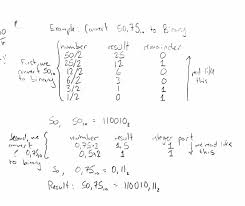 Example: Convert 50,75₁₀ to Binary
First, we convert 50₁₀ to binary
number result remainder
50/2 25 0
25/2 12 1
12/2 6 0
6/2 3 0
3/2 1 1
1/2 0 1
read like this
So, 50₁₀ = 110010₂
Second, we convert 0,75₁₀ to binary
number result integer part
0,75·2 1,5 1
0,5·2 1 1
read like this
So, 0,75₁₀ = 0,11₂
Result: 50,75₁₀ = 110010,11₂